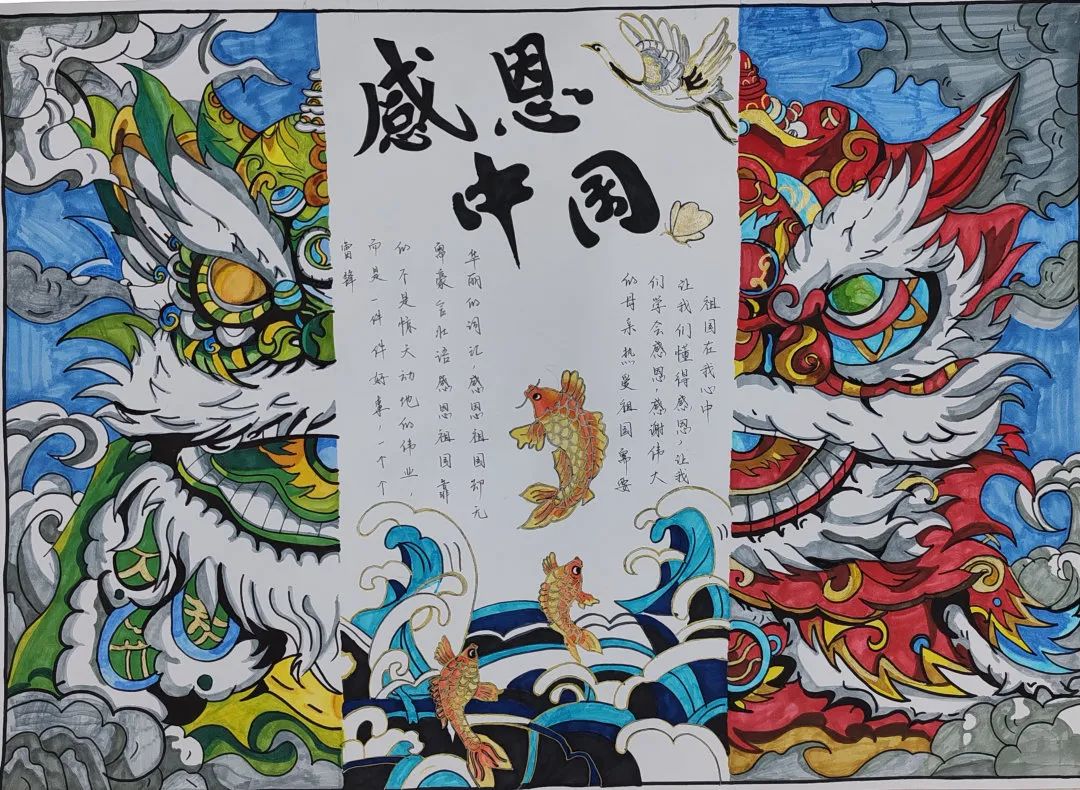 感恩
中国
祖国在我心中
让我们懂得感恩，让我
们学会感恩感谢伟大
的母亲热爱祖国需要
华丽的词汇，感恩祖国却无
需豪言壮语感恩祖国靠
的不是惊天动地的伟业，
而是一件件好事，一个个
雷锋